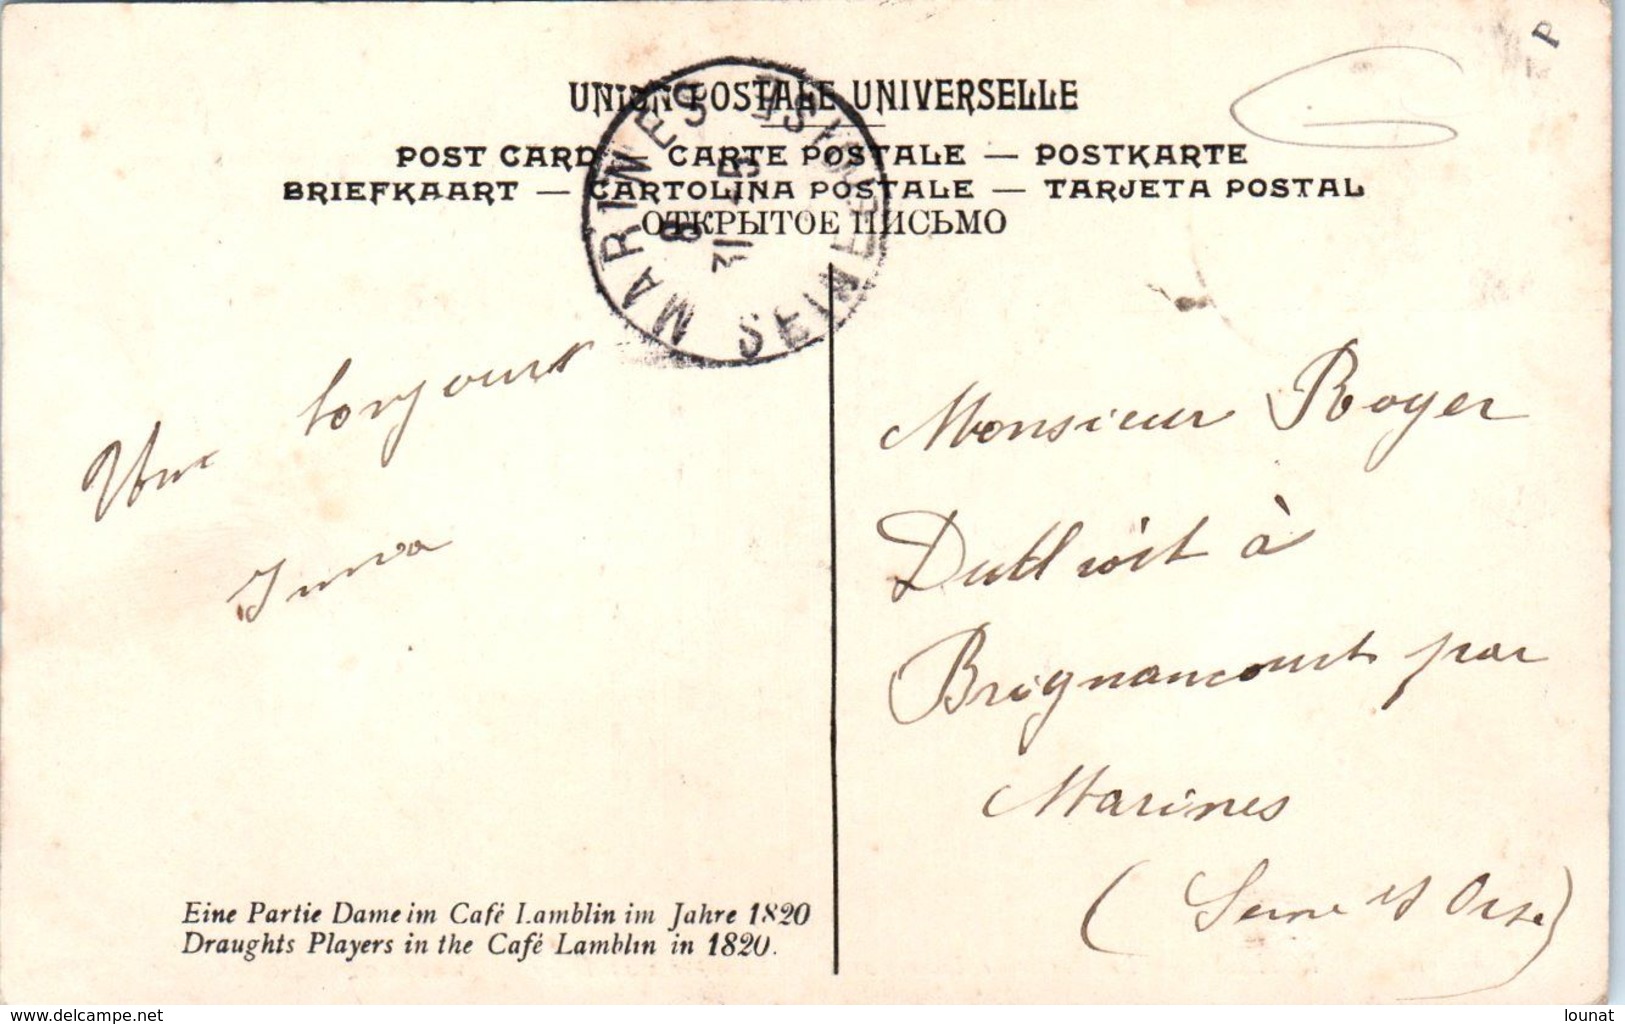 UNION POSTALE UNIVERSELLE
POST CARD — CARTE POSTALE — POSTKARTE
BRIEFKAART — CARTOLINA POSTALE — TARJETA POSTAL
ОТКРЫТОЕ ПИСЬМО
MARINES
SEINE-ET-OISE
8
31
P
toujours
Monsieur Royer
à
Brignancourt par
Marines
(Seine et Oise)
Eine Partie Dame im Café Lamblin im Jahre 1820
Draughts Players in the Café Lamblin in 1820.
www.delcampe.net
lounat